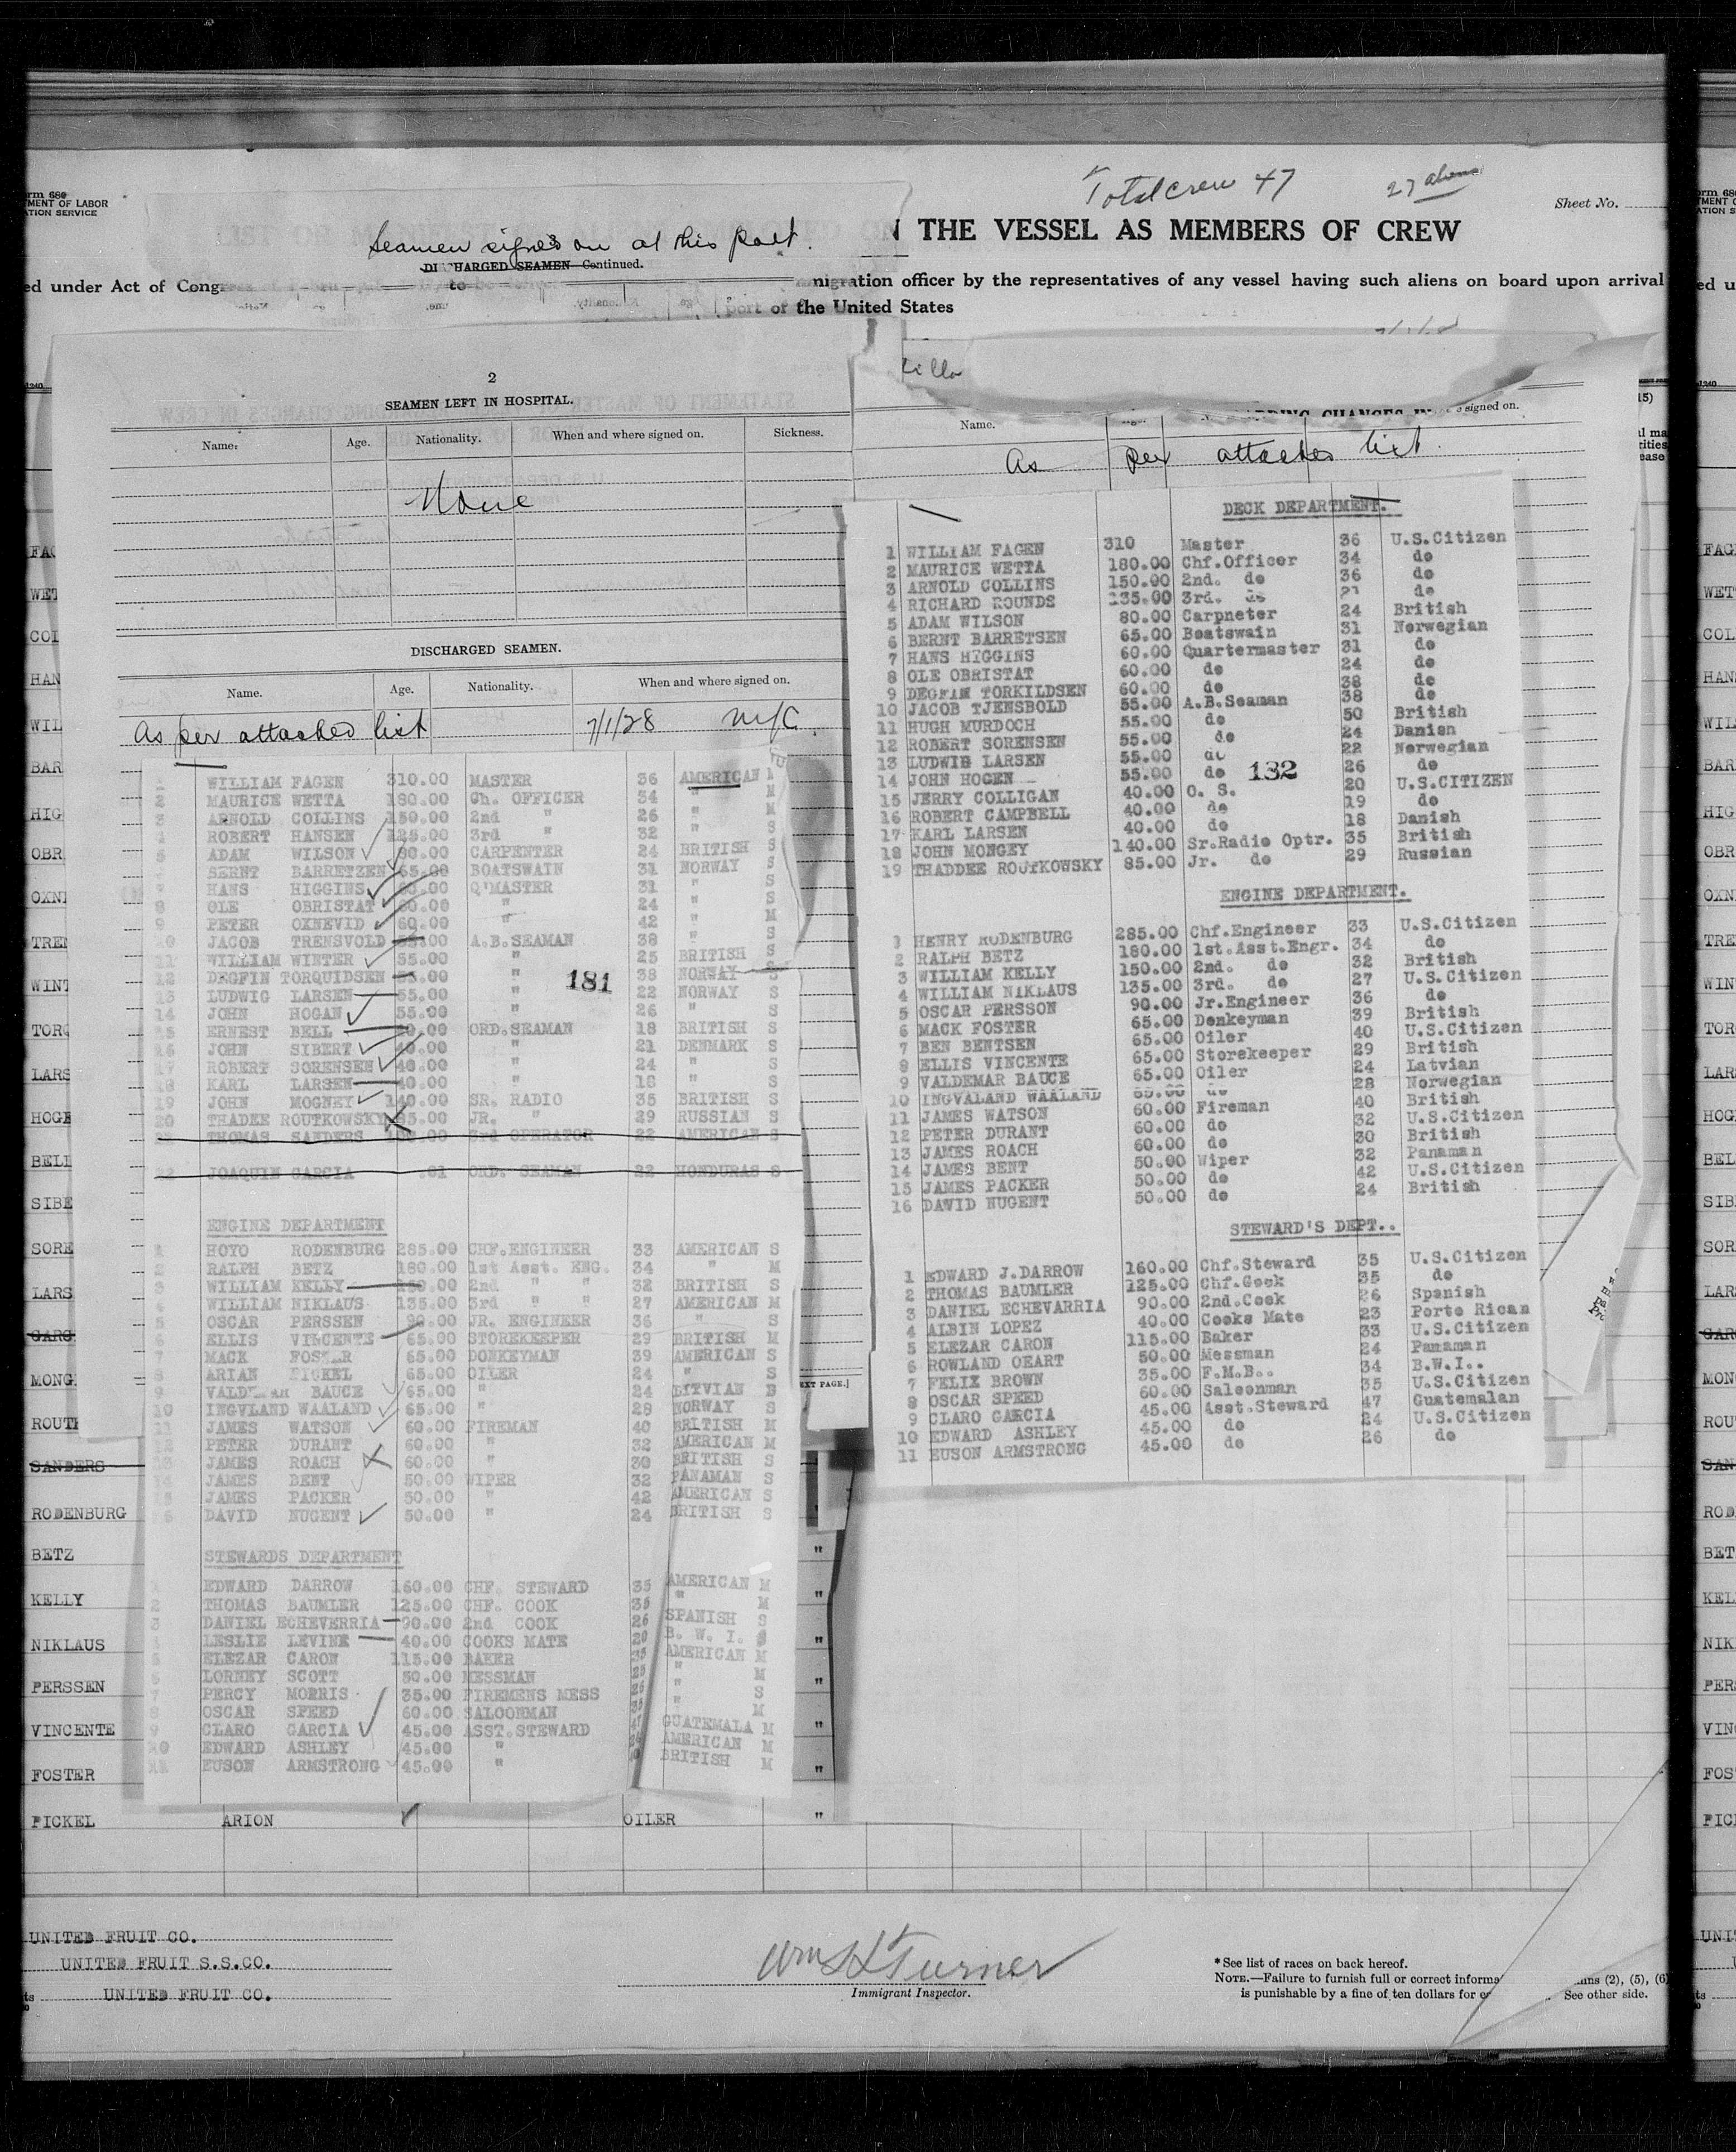 Total crew 47 27 aliens
Sheet No.
rm 680
MENT OF LABOR
ATION SERVICE
THE VESSEL AS MEMBERS OF CREW
Seamen signed on at this Port.
DISCHARGED SEAMEN Continued.
ed under Act of Cong
to
migration officer by the representatives of any vessel having such aliens on board upon arrival
port of the United States
2
SEAMEN LEFT IN HOSPITAL.
Name. Age. Nationality. When and where signed on. Sickness.
None
DISCHARGED SEAMEN.
Name. Age. Nationality. When and where signed on.
As per attached list 7/1/28 N/C.
1 WILLIAM FAGEN 310.00 MASTER 36 AMERICAN M
2 MAURICE WETTA 180.00 Ch. OFFICER 34 " M
3 ARNOLD COLLINS 150.00 2nd " 26 " M
4 ROBERT HANSEN 125.00 3rd " 32 " S
5 ADAM WILSON 80.00 CARPENTER 24 BRITISH S
BERNT BARRETZEN 65.00 BOATSWAIN 31 NORWAY S
HANS HIGGINS 60.00 Q'MASTER 31 " S
8 OLE OBRISTAT 60.00 " 24 " S
9 PETER OXNEVID 60.00 " 42 " M
10 JACOB TRENSVOLD 55.00 A.B.SEAMAN 38 " S
11 WILLIAM WINTER 55.00 " 25 BRITISH S
12 DEGFIN TORQUIDSEN 55.00 " 38 NORWAY S
181
13 LUDWIG LARSEN 55.00 " 22 NORWAY S
14 JOHN HOGAN 55.00 " 26 " S
15 ERNEST BELL 40.00 ORD.SEAMAN 18 BRITISH S
16 JOHN SIBERT 40.00 " 21 DENMARK S
17 ROBERT SORENSEN 40.00 " 24 " S
18 KARL LARSEN 40.00 " 18 " S
19 JOHN MOGNEY 140.00 SR. RADIO 35 BRITISH S
20 THADEE ROUTKOWSKY 85.00 JR. " 29 RUSSIAN S
THOMAS SANDERS 3rd OPERATOR 22 AMERICAN S
22 JOAQUIN GARCIA .01 ORD. SEAMAN 22 HONDURAS S
ENGINE DEPARTMENT
1 HOYO RODENBURG 285.00 CHF.ENGINEER 33 AMERICAN S
2 RALPH BETZ 180.00 1st Asst. ENG. 34 " M
3 WILLIAM KELLY 150.00 2nd " " 32 BRITISH S
4 WILLIAM NIKLAUS 135.00 3rd " " 27 AMERICAN M
5 OSCAR PERSSEN 90.00 JR. ENGINEER 36 " S
6 ELLIS VINCENTE 65.00 STOREKEEPER 29 BRITISH M
7 MACK FOSTER 65.00 DONKEYMAN 39 AMERICAN S
8 ARIAN PICKEL 65.00 OILER 24 " S
9 VALDEMAR BAUCE 65.00 " 24 LITVIAN S
10 INGVLAND WAALAND 65.00 " 28 NORWAY S
11 JAMES WATSON 60.00 FIREMAN 40 BRITISH M
12 PETER DURANT 60.00 " 32 AMERICAN M
13 JAMES ROACH 60.00 " 30 BRITISH S
14 JAMES BENT 50.00 WIPER 32 PANAMAN S
15 JAMES PACKER 50.00 " 42 AMERICAN S
16 DAVID NUGENT 50.00 " 24 BRITISH S
STEWARDS DEPARTMENT
EDWARD DARROW 160.00 CHF. STEWARD 35 AMERICAN M
2 THOMAS BAUMLER 125.00 CHF. COOK 35 " M
3 DANIEL ECHEVERRIA 90.00 2nd COOK 26 SPANISH S
4 LESLIE LEVINE 40.00 COOKS MATE 20 B. W. I. S
5 ELEZAR CARON 115.00 BAKER 33 AMERICAN M
6 LORNEY SCOTT 50.00 MESSMAN 25 " M
7 PERCY MORRIS 35.00 FIREMENS MESS 26 " S
8 OSCAR SPEED 60.00 SALOONMAN 35 " M
9 CLARO GARCIA 45.00 ASST.STEWARD 47 GUATEMALA M
10 EDWARD ASHLEY 45.00 " AMERICAN M
11 EUSON ARMSTRONG 45.00 " BRITISH M
Name. signed on.
As per attached list.
DECK DEPARTMENT.
1 WILLIAM FAGEN 310 Master 36 U.S.Citizen
2 MAURICE WETTA 180.00 Chf.Officer 34 do
3 ARNOLD COLLINS 150.00 2nd. do 36 do
4 RICHARD ROUNDS 135.00 3rd. do 21 do
5 ADAM WILSON 80.00 Carpneter 24 British
6 BERNT BARRETSEN 65.00 Boatswain 31 Norwegian
7 HANS HIGGINS 60.00 Quartermaster 31 do
8 OLE OBRISTAT 60.00 do 24 do
9 DEGFIN TORKILDSEN 60.00 do 38 do
10 JACOB TJENSBOLD 55.00 A.B.Seaman 38 do
11 HUGH MURDOCH 55.00 do 50 British
12 ROBERT SORENSEN 55.00 do 24 Danish
13 LUDWIG LARSEN 55.00 do 22 Norwegian
14 JOHN HOGEN 55.00 do 26 do
132
15 JERRY COLLIGAN 40.00 O. S. 20 U.S.CITIZEN
16 ROBERT CAMPBELL 40.00 do 19 do
17 KARL LARSEN 40.00 do 18 Danish
18 JOHN MONGEY 140.00 Sr.Radio Optr. 35 British
19 THADDEE ROUTKOWSKY 85.00 Jr. do 29 Russian
ENGINE DEPARTMENT.
1 HENRY RODENBURG 285.00 Chf.Engineer 33 U.S.Citizen
2 RALPH BETZ 180.00 1st.Asst.Engr. 34 do
3 WILLIAM KELLY 150.00 2nd. do 32 British
4 WILLIAM NIKLAUS 135.00 3rd. do 27 U.S.Citizen
5 OSCAR PERSSON 90.00 Jr.Engineer 36 do
6 MACK FOSTER 65.00 Donkeyman 39 British
7 BEN BENTSEN 65.00 Oiler 40 U.S.Citizen
8 ELLIS VINCENTE 65.00 Storekeeper 29 British
9 VALDEMAR BAUCE 65.00 Oiler 24 Latvian
10 INGVALAND WAALAND 65.00 do 28 Norwegian
11 JAMES WATSON 60.00 Fireman 40 British
12 PETER DURANT 60.00 do 32 U.S.Citizen
13 JAMES ROACH 60.00 do 30 British
14 JAMES BENT 50.00 Wiper 32 Panaman
15 JAMES PACKER 50.00 do 42 U.S.Citizen
16 DAVID NUGENT 50.00 do 24 British
STEWARD'S DEPT..
1 EDWARD J.DARROW 160.00 Chf.Steward 35 U.S.Citizen
2 THOMAS BAUMLER 125.00 Chf.Cook 35 do
3 DANIEL ECHEVARRIA 90.00 2nd.Cook 26 Spanish
4 ALBIN LOPEZ 40.00 Cooks Mate 23 Porto Rican
5 ELEZAR CARON 115.00 Baker 33 U.S.Citizen
6 ROWLAND OEART 50.00 Messman 24 Panaman
7 FELIX BROWN 35.00 F.M.B.. 34 B.W.I..
8 OSCAR SPEED 60.00 Saloonman 35 U.S.Citizen
9 CLARO GARCIA 45.00 Asst.Steward 47 Guatemalan
10 EDWARD ASHLEY 45.00 do 24 U.S.Citizen
11 EUSON ARMSTRONG 45.00 do 26 do
EXT PAGE.]
FAG
WET
COL
HAN
WIL
BAR
HIG
OBR
OXN
TRE
WINT
TORQ
LARS
HOGE
BELL
SIBE
SORE
LARS
GARC
MONG
ROUTK
SANDERS
RODENBURG "
BETZ "
KELLY "
NIKLAUS "
PERSSEN "
VINCENTE "
FOSTER "
PICKEL ARION OILER "
UNITED FRUIT CO.
UNITED FRUIT S.S.CO.
UNITED FRUIT CO.
Wm S L Turner
Immigrant Inspector.
* See list of races on back hereof.
NOTE.—Failure to furnish full or correct informa
is punishable by a fine of ten dollars for
ns (2), (5), (6)
See other side.